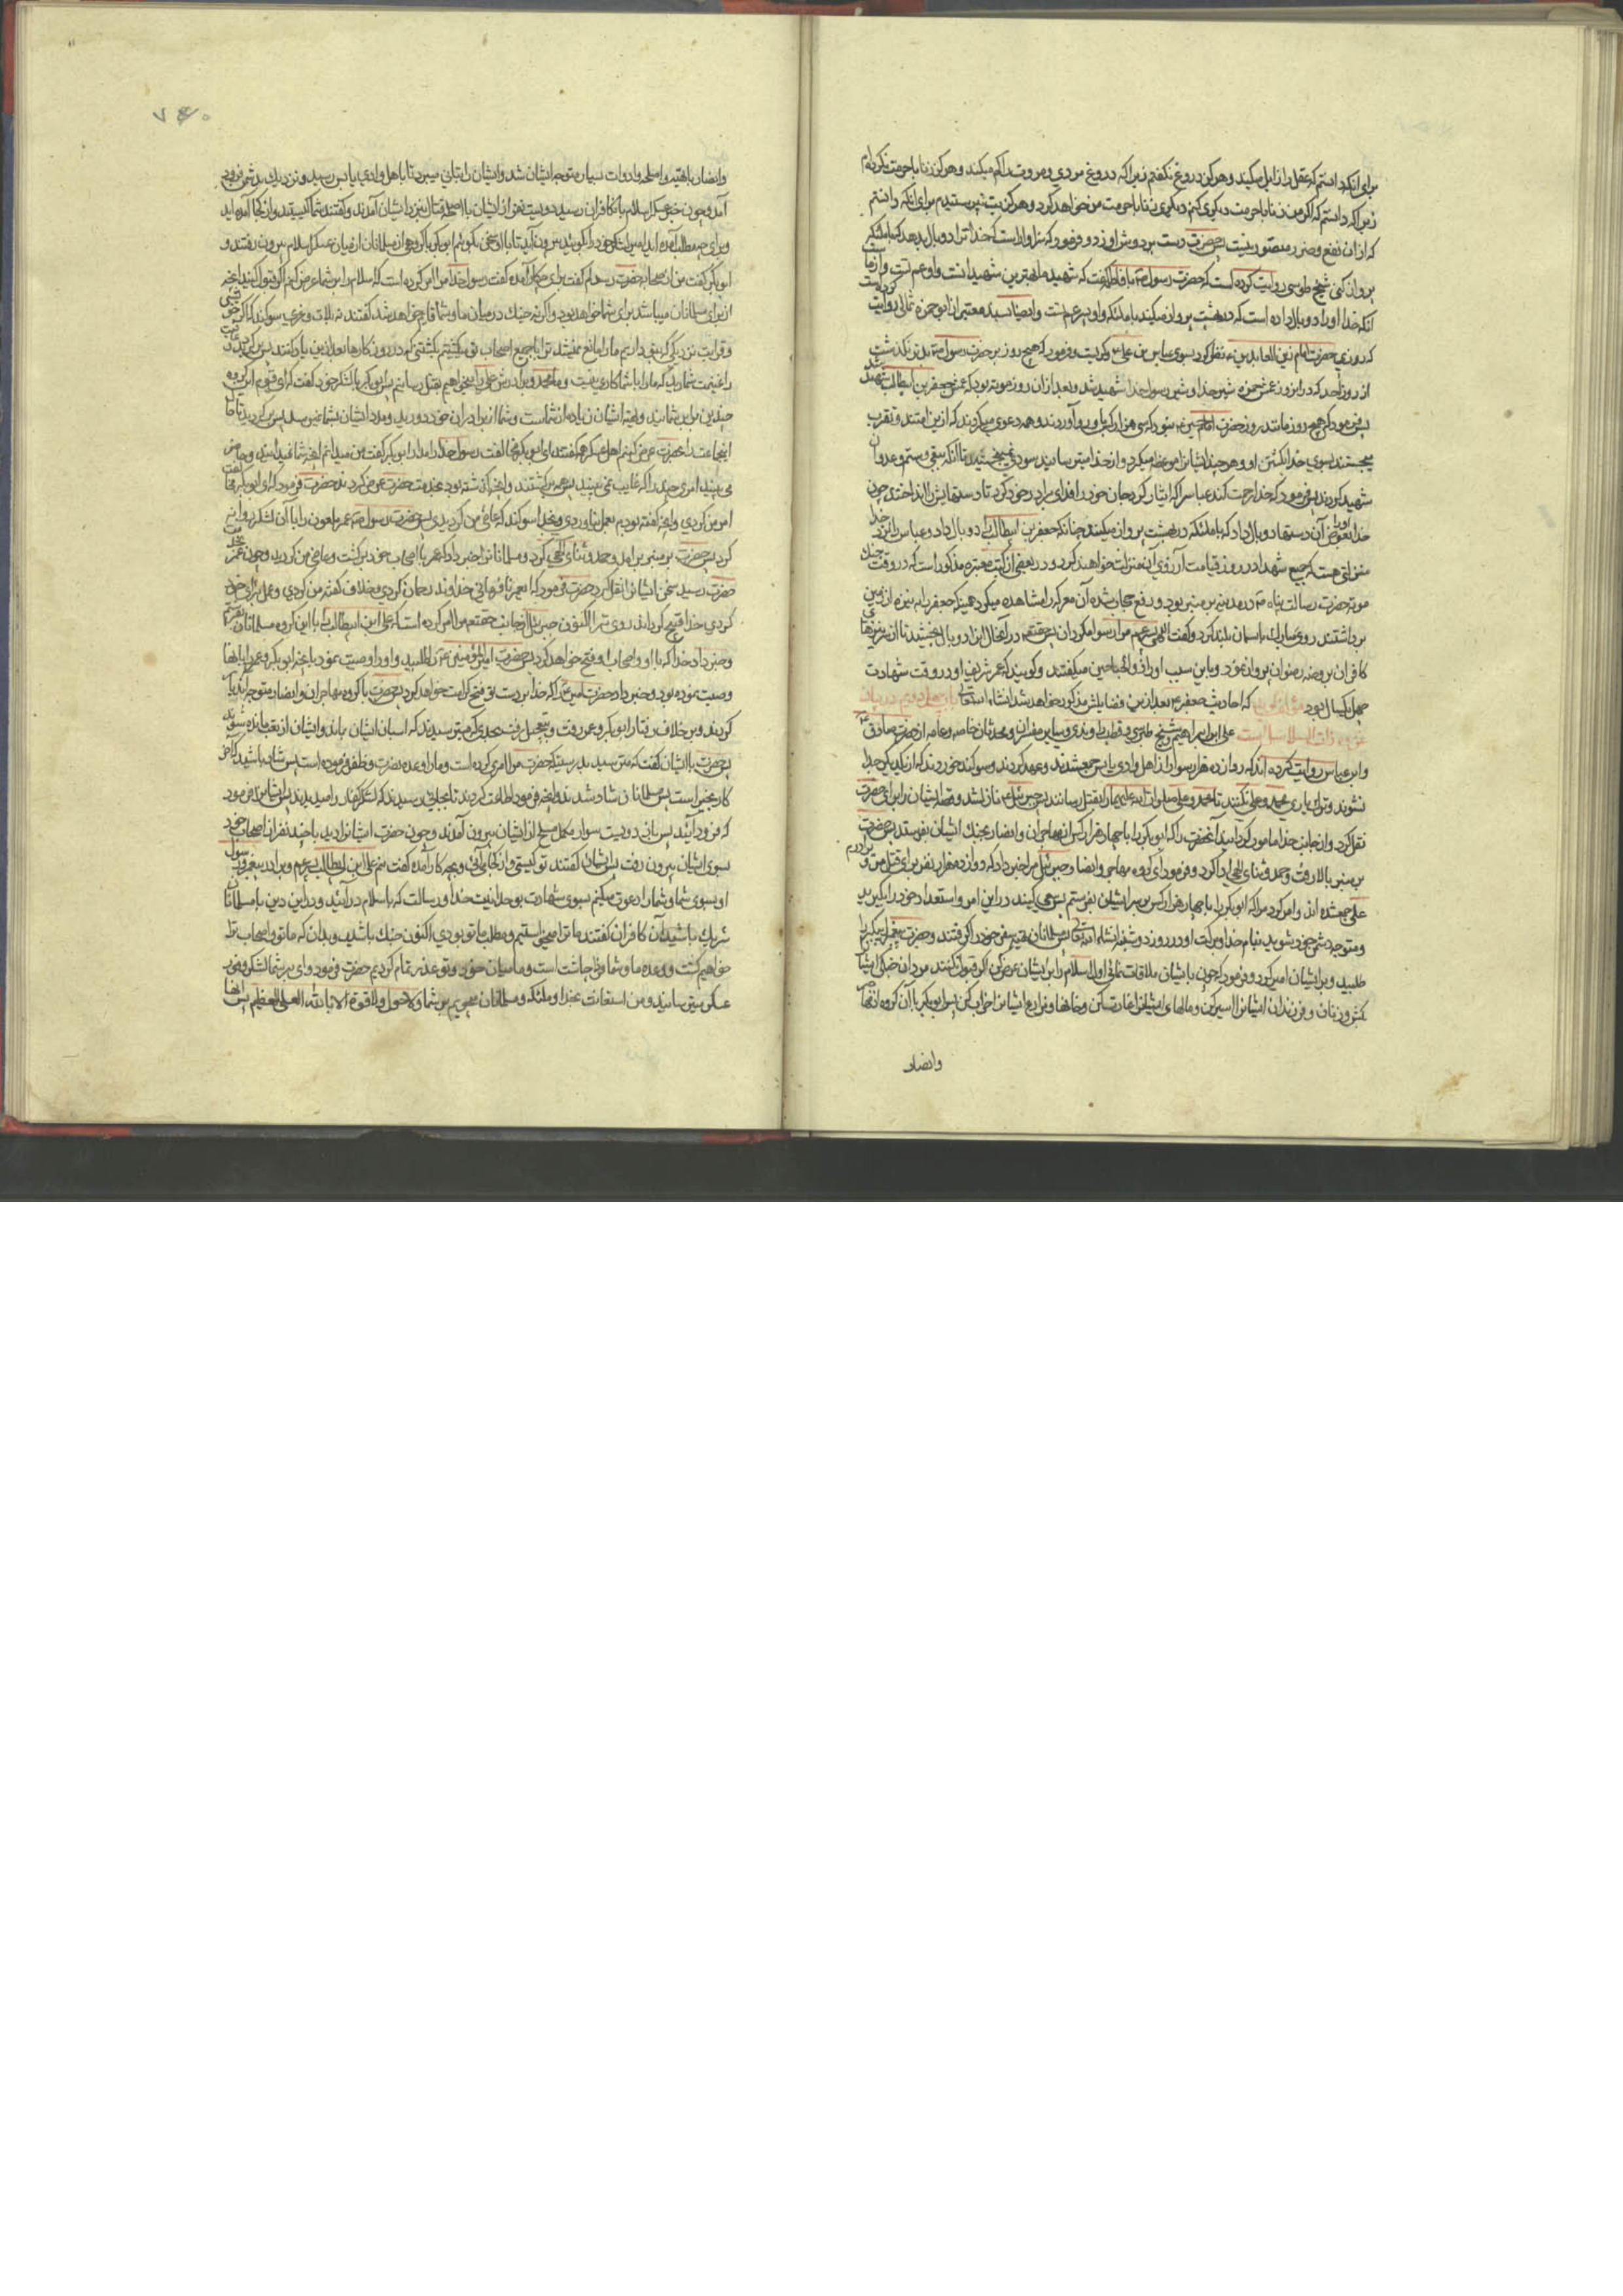 برای آنکه دانستم که عقل را زایل میکند و هرگز دروغ نگفتم زیرا که دروغ مردی و مروت را کم میکند و هرگز زنا با حرمت نکرده‌ام
زیرا که دانستم که اگر من زنا با حرمت دیگری کنم دیگری زنا با حرمت من خواهد کرد و هرگز بت نپرستیدم برای آنکه دانستم
که از آن نفع و ضرر متصور نیست پس حضرت دست بر دوش او زد و فرمود که سزاوار است که خدا ترا دو بال بدهد که با ملائکه
پرواز کنی شیخ طوسی روایت کرده است که حضرت رسول ص با فاطمه گفت که شهید ما بهترین شهیدانست و او عم تست و از ما است
آنکه خدا او را دو بال داده است که در بهشت پرواز میکند با ملائکه و او پسر عم تست و ایضا بسند معتبر از ابو حمزه ثمالی روایت کرده است
که روزی حضرت امام زین العابدین ع نظر کرد بسوی عباس بن علی ع و گریست و فرمود که هیچ روز بر حضرت رسول ص بدتر نگذشت
از روز احد که در آن روز عمش حمزه شیر خدا و شیر رسول خدا شهید شد و بعد از آن روز موته بود که پسر عمش جعفر بن ابیطالب شهید شد
پس فرمود که هیچ روز مانند روز حضرت امام حسین ع نبود که سی هزار کس باو رو آوردند و همه دعوی میکردند که از این امتند و تقرب
میجستند بسوی خدا بکشتن او و هر چند ایشان را موعظه میکرد و از خدا میترسانید سودی نمیبخشید تا آنکه ببغی و ستم و عدوان
شهید کردند پس فرمود که خدا رحمت کند عباس را که ایثار کرد و جان خود را فدای برادر خود کرد تا دستهایش را انداختند چون
خدا بعوض آن دستها دو بال او را داد که با ملائکه در بهشت پرواز میکند چنانکه جعفر بن ابیطالب را دو بال داد و عباس را نزد خدا
منزلتی هست که جمیع شهدا در روز قیامت آرزوی آن منزلت خواهند کرد و در بعضی از کتب معتبره مذکور است که در وقت جنگ
موته حضرت رسالت پناه ص در مدینه بر منبر بود و رفع حجاب شده آن معرکه را مشاهده میکرد همینکه جعفر را به نیزه از زمین
برداشتند روی مبارک باسمان بلند کرد و گفت
کافران بروضه رضوان پرواز نمود و باین سبب او را ذو الجناحین میگفتند و گویند که عمر شریف او در وقت شهادت
چهل یکسال بود که احادیث جعفر ع بعد ازین و فضایلش مذکور خواهد شد انشاء الله تعالی باب چهل دویم در بیان
غزوه ذات السلاسل است علی ابن ابراهیم و شیخ طبرسی و قطب راوندی و سایر مفسران و محدثان خاصه و عامه از حضرت صادق ع
و ابن عباس روایت کرده اند که دوازده هزار سوار از اهل وادی یابس جمع شدند و عهد کردند و سوگند خوردند که از یکدیگر جدا
نشوند و ترک یاری
نقل کرد و از جانب خدا مامور گردانید آنحضرت را که ابوبکر را با چهار هزار کس از مهاجران و انصار بجنگ ایشان بفرستد پس حضرت
بر منبر بالا رفت و حمد و ثنای الهی ادا کرد و فرمود ای گروه مهاجر و انصار جبرئیل مرا خبر داد که دوازده هزار نفر برای قتل من و برادرم
علی جمع شده اند و امر کرد مرا که ابوبکر را با چهار هزار کس بر سر ایشان بفرستم پس سعی کنید در این امر و استعداد خود را بگیرید
و متوجه دشمن خود شوید بنام خدا و برکت او در روز دوشنبه انشاء الله تعالی پس مسلمانان تهیه سفر خود را گرفتند و حضرت پیغمبر ابوبکر را
طلبید و بر ایشان امیر کرد و فرمود که چون با ایشان ملاقات نمائی اول اسلام را بر ایشان عرض کن اگر قبول نکنند مردان جنگی ایشان را
بکش و زنان و فرزندان ایشان را اسیر کن و مالهای ایشان را غارت کن و خانها و مزارع ایشان را خراب کن پس ابوبکر با آن گروه
وانصار
۷۶۰
وانصار با تهیه و اسلحه و ادوات بسیار متوجه ایشان شد و ایشان را بتانی میبرد تا باهل وادی یابس رسید و نزدیک بدشمن فرود
آمد و چون خبر عسکر اسلام بان کافران رسید دویست نفر از ایشان با اسلحه قتال نزد ایشان آمدند و گفتند شما کیستید و از کجا آمده اید
و برای چه مطلب آمده اید امیر لشکر خود را بگوئید بیرون آید تا با او سخن بگوئیم ابوبکر با گروهی از مسلمانان از میان عسکر اسلام بیرون رفتند و
ابوبکر گفت من از صحابه حضرت رسولم گفت برای چه کار آمده گفت رسول خدا مرا امر کرده است که اسلام را بر شما عرض کنم اگر قبول کنید آنچه
از برای مسلمانان میباشد برای شما خواهد بود و اگر نه جنگ در میان ما و شما قایم خواهد شد گفتند به لات و عزی سوگند که اگر خویشی
و قرابت نزدیک که بتو داریم ما را مانع نمیشد ترا با جمیع اصحاب تو میکشتیم بکشتنی که در روزگارها بعد ازین یاد کنند پس برگردید و عافیت
را غنیمت شمارید که ما را با شما کاری نیست و ما محمد و برادرش علی را میخواهیم بقتل رسانیم پس ابوبکر با لشکر خود گفت که ای قوم این گروه
چندین برابر شمایند و تهیه ایشان زیاده از شماست و شما از برادران خود دورید و مدد ایشان بشما نمیرسد پس برگردید تا حال
این جماعت را بحضرت عرض کنیم اهل عسکر همه گفتند ای ابوبکر مخالفت رسول خدا
می بیند امری چند را که غایب نمی بیند پس همه برگشتند و آنچه گذشته بود بخدمت حضرت عرض کردند حضرت فرمود که ای ابوبکر مخالفت
امر من کردی و آنچه گفته بودم بعمل نیاوردی و بخدا سوگند که عاصی من گردیدی پس حضرت رسول ص
کرد پس حضرت بر منبر برآمد و حمد و ثنای الهی کرد و مسلمانان را خبر داد که عمر با اصحاب خود برگشت و عاصی من گردید و چون عمر بخدمت
حضرت رسید سخن ایشان را نقل کرد حضرت فرمود که ای عمر نافرمانی خداوند رحمان کردی و خلاف گفته من کردی و عمل برای خود
کردی خدا قبیح گرداند روی ترا اکنون جبرئیل از جانب حقتعالی مرا امر کرده است که علی ابن ابیطالب را با این گروه مسلمانان بفرستم
و خبر داد خدا که با او و اصحاب او فتح خواهد کرد پس حضرت امیر المؤمنین ع را طلبید و او را وصیت نمود بآنچه ابوبکر و عمر را بآنها
وصیت نموده بود و خبر داد حضرت امیر ع را که خدا بر دست تو فتح کرامت خواهد کرد پس حضرت با گروه مهاجران و انصار متوجه آنجانب
گردیدند و بر خلاف رفتار ابوبکر و عمر رفت و بتعجیل رفت بحدی که میترسیدند که اسبان ایشان بماند و ایشان از تعب مانده شوند
پس حضرت با ایشان گفت که مترسید بدرستیکه حضرت مرا امری کرده است و مرا وعده نصرت و ظفر فرموده است پس شاد باشید که آخر
کار بخیر است پس مسلمانان شاد شدند و آنچه فرمود اطاعت کردند تا بمحلی رسیدند که لشکر کفار را میدیدند پس ایشان را فرمود
که فرود آیند پس باز دویست سوار مکمل مسلح از ایشان بیرون آمدند و چون حضرت ایشان را دید با چند نفر از اصحاب خود
بسوی ایشان بیرون رفت پس ایشان گفتند تو کیستی و از کجا می آئی و بچه کار آمده گفت منم علی ابن ابیطالب پسر عم و برادر پیغمبر و رسول
او بسوی شما و شما را دعوت میکنم بسوی شهادت بوحدانیت خدا و رسالت که باسلام در آئید و در این دین با مسلمانان
شریک باشید آن کافران گفتند ما ترا میخواستیم و مطلب ما تو بودی اکنون جنگ را باش و بدان که ما تو و اصحاب ترا
خواهیم کشت و وعده ما و شما وقت چاشت است و ما میان خود و تو عذر تمام کردیم حضرت فرمود وای بر شما
میترسانید و من استعانت بخدا و ملائکه و مسلمانان میجویم بر شما و لا حول و لا قوة الا بالله العلی العظیم پس آنها